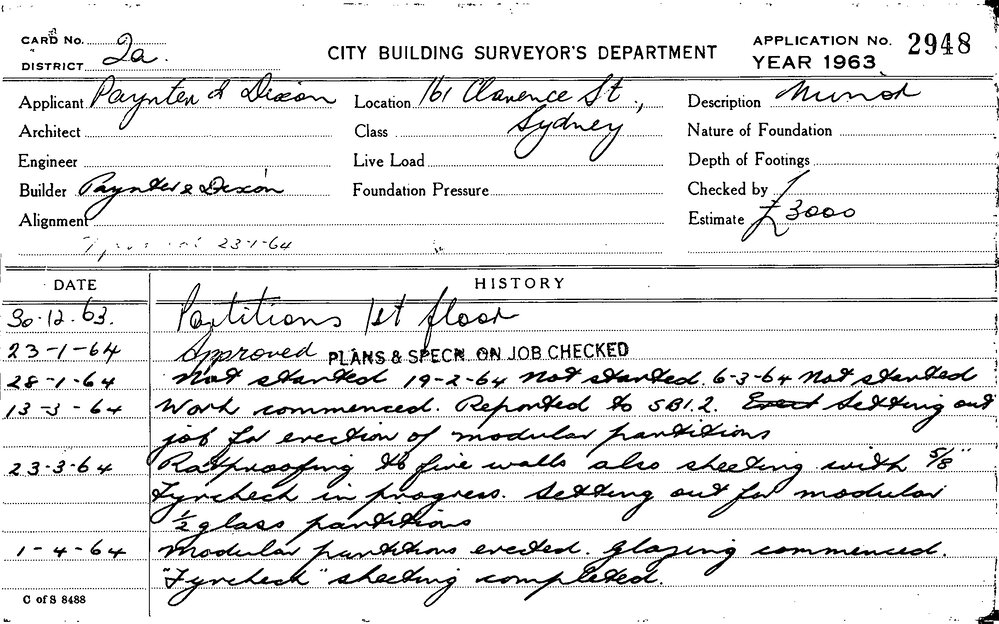 CARD No.
DISTRICT 2a.
CITY BUILDING SURVEYOR'S DEPARTMENT
APPLICATION No. 2948
YEAR 1963
Applicant Paynter & Dixon Location 161 Clarence St., Description Minor
Architect Class Sydney Nature of Foundation
Engineer Live Load Depth of Footings
Builder Paynter & Dixon Foundation Pressure Checked by
Alignment Estimate £3000
23-1-64
DATE HISTORY
30.12.63. Partitions 1st floor
23-1-64 Approved PLANS & SPECN. ON JOB CHECKED
28-1-64 Not started 19-2-64 Not started. 6-3-64 Not started
13-3-64 Work commenced. Reported to SB1.2. Erect Setting out
job for erection of modular partitions
23-3-64 Ratproofing to fire walls also sheeting with 5/8"
Fyrcheck in progress. Setting out for modular
1/2 glass partitions
1-4-64 Modular partitions erected. Glazing commenced.
"Fyrcheck" sheeting completed.
C of S 8488